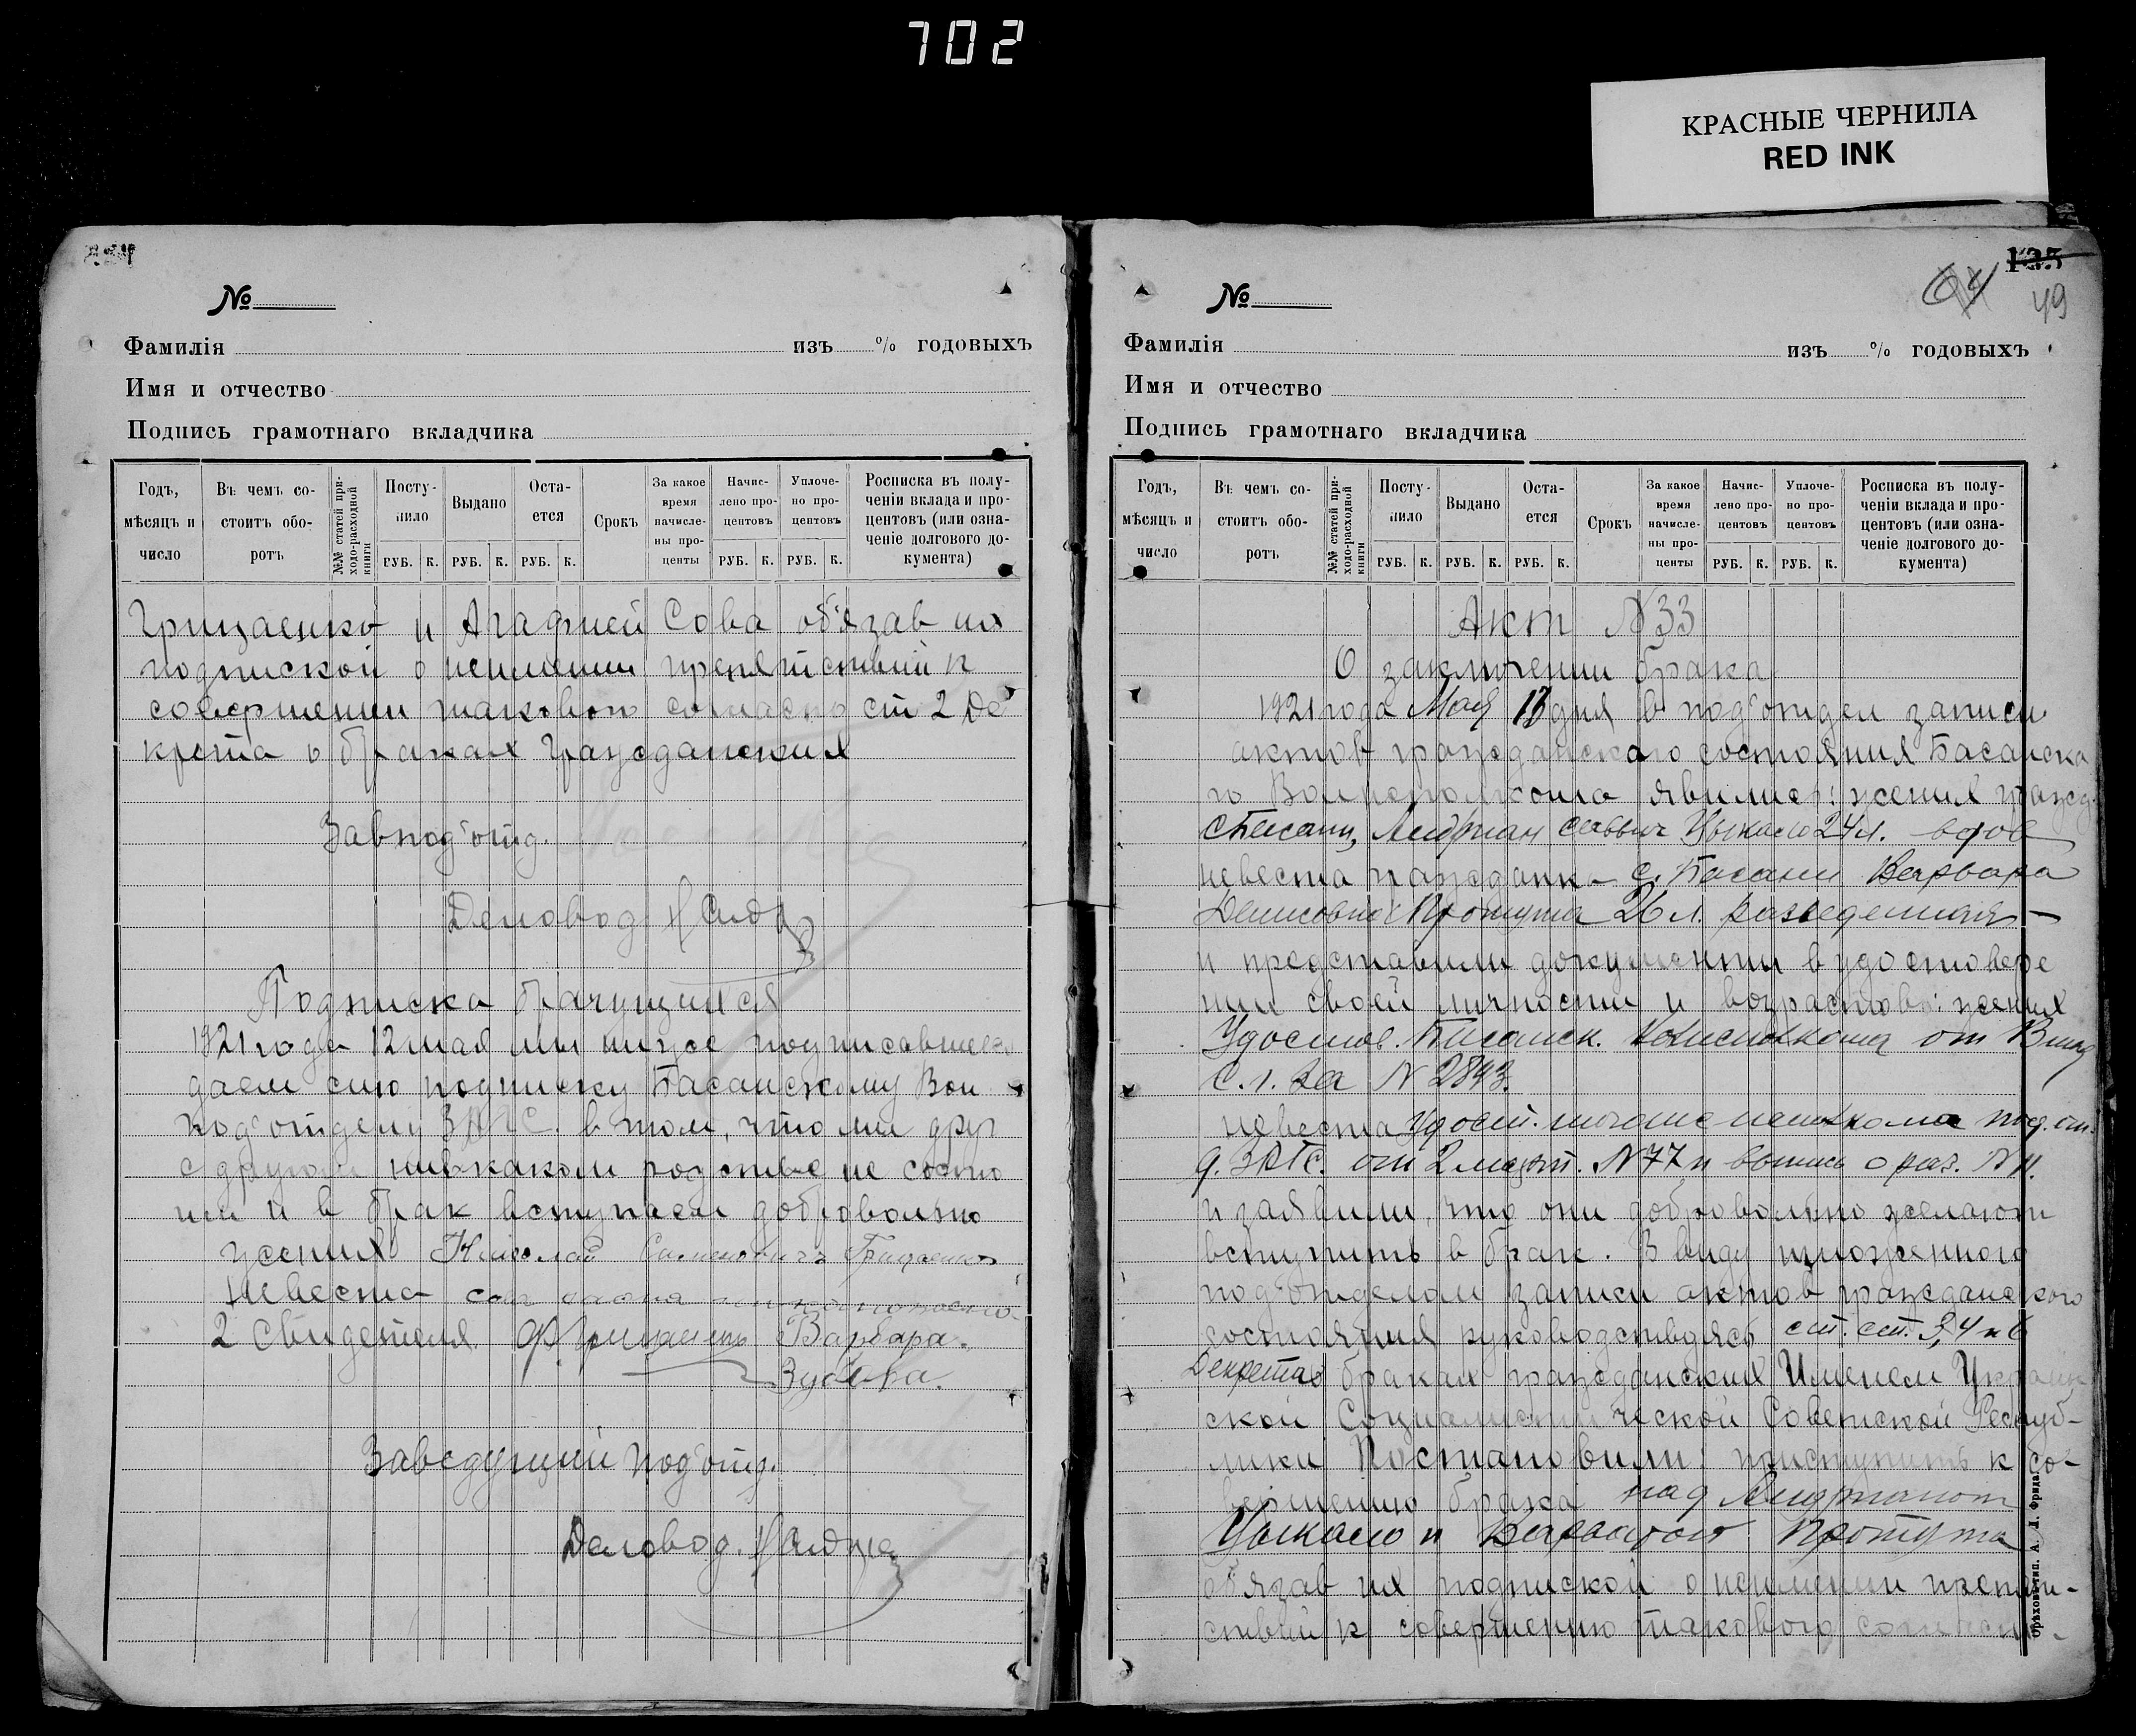 702
КРАСНЫЕ ЧЕРНИЛА
RED INK
№
Фамилія из% годовыхъ
Имя и отчество
Подпись грамотнаго вкладчика
Годъ, мѣсяцъ и число
Въ чемъ состоитъ оборотъ
№№ статей приходо-расходной книги
Поступило РУБ. К.
Выдано РУБ. К.
Остается РУБ. К.
Срокъ
За какое время начислены проценты
Начислено процентовъ РУБ. К.
Уплочено процентовъ РУБ. К.
Росписка въ полученіи вклада и процентовъ (или означеніе долгового документа)
Грицаенко и Агафией Сова об'язав их
подпиской о неимении препятствий к
совершении такового согласно ст 2 Де
крета о браках гражданских
Завпод'отд.
Деловод
Подписка брачущихся
1921 года 12 мая мы ниже подписавшиеся
даем сию подписку Басанскому Вол
под'отделу ЗАГС. в том, что мы друг
с другом ни в каком родстве не состо
им и в брак вступаем добровольно
жених Николай Симеоновичъ Грицаенко
Невеста
2 свидетеля Варвара
Зубера.
Заведующий под'отд.
Деловод.
135
64
49
№
Фамилія изъ % годовыхъ
Имя и отчество
Подпись грамотнаго вкладчика
Годъ, мѣсяцъ и число
Въ чемъ состоитъ оборотъ
№№ статей приходо-расходной книги
Поступило РУБ. К.
Выдано РУБ. К.
Остается РУБ. К.
Срокъ
За какое время начислены проценты
Начислено процентовъ РУБ. К.
Уплочено процентовъ РУБ. К.
Росписка въ полученіи вклада и процентовъ (или означеніе долгового документа)
Акт N 33
О заключении брака
1921 года Мая 13 дня в под'отдел записи
актов гражданскаго состояния Басанска
го Волисполкома явились: жених гражд.
с Басани, Андриан Саввич Цыкало 24 л. вдов
невеста гражданка с. Басани Варвара
Денисовна Протута 26 л. разведенная
и представили документы в удостовере
нии своей личности и возрастов: жених
Удостов. Басанск. Волисполкома от 8 мая
с. г. за N 2893.
невеста Удост. того же исполкома под. от.
д. ЗАГС. от N 77 и о раз. N 11.
и заявили, что они добровольно желают
вступить в брак. В виду изложенного
под'отделом записи актов гражданского
состояния руководствуясь ст. ст. 3, 4 и 6
Декрета о браках гражданских Именем Украин
ской Социалистической Советской Респуб-
лики Постановили: приступить к со-
вершению брака над Андрианом
Цыкало и Варварой Протута
об'язав их подпиской о неимении препят-
ствий к совершению такового согласно
Орѣховъ тип. А. Л. Фрида